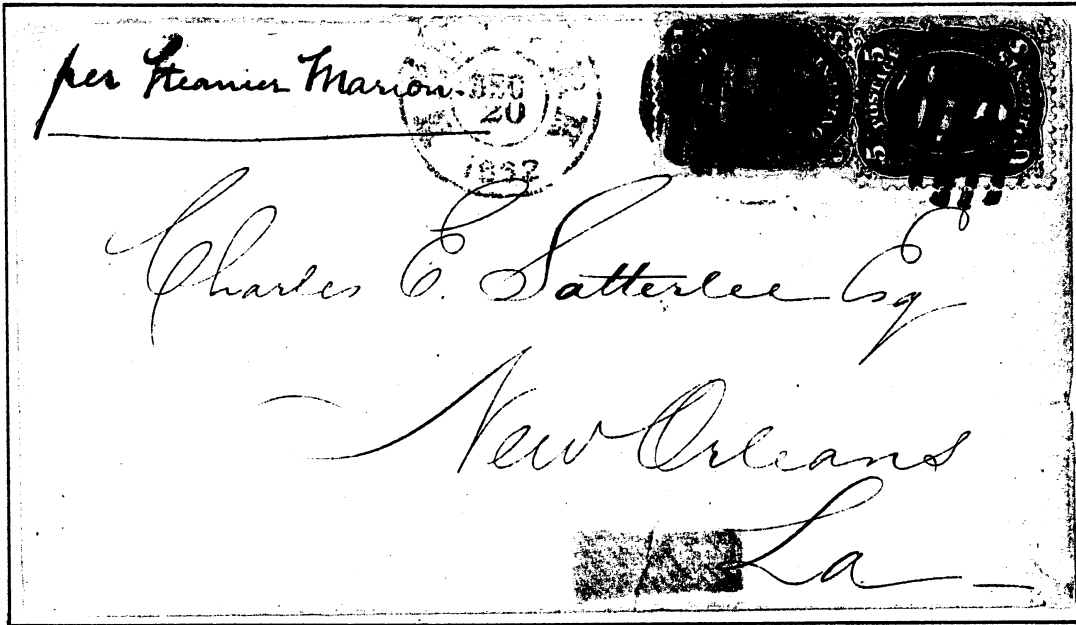 per Steamer Marion
DEC
20
1862
5 POSTAGE 5
U STATES
Charles E. Satterlee Esq
New Orleans
La